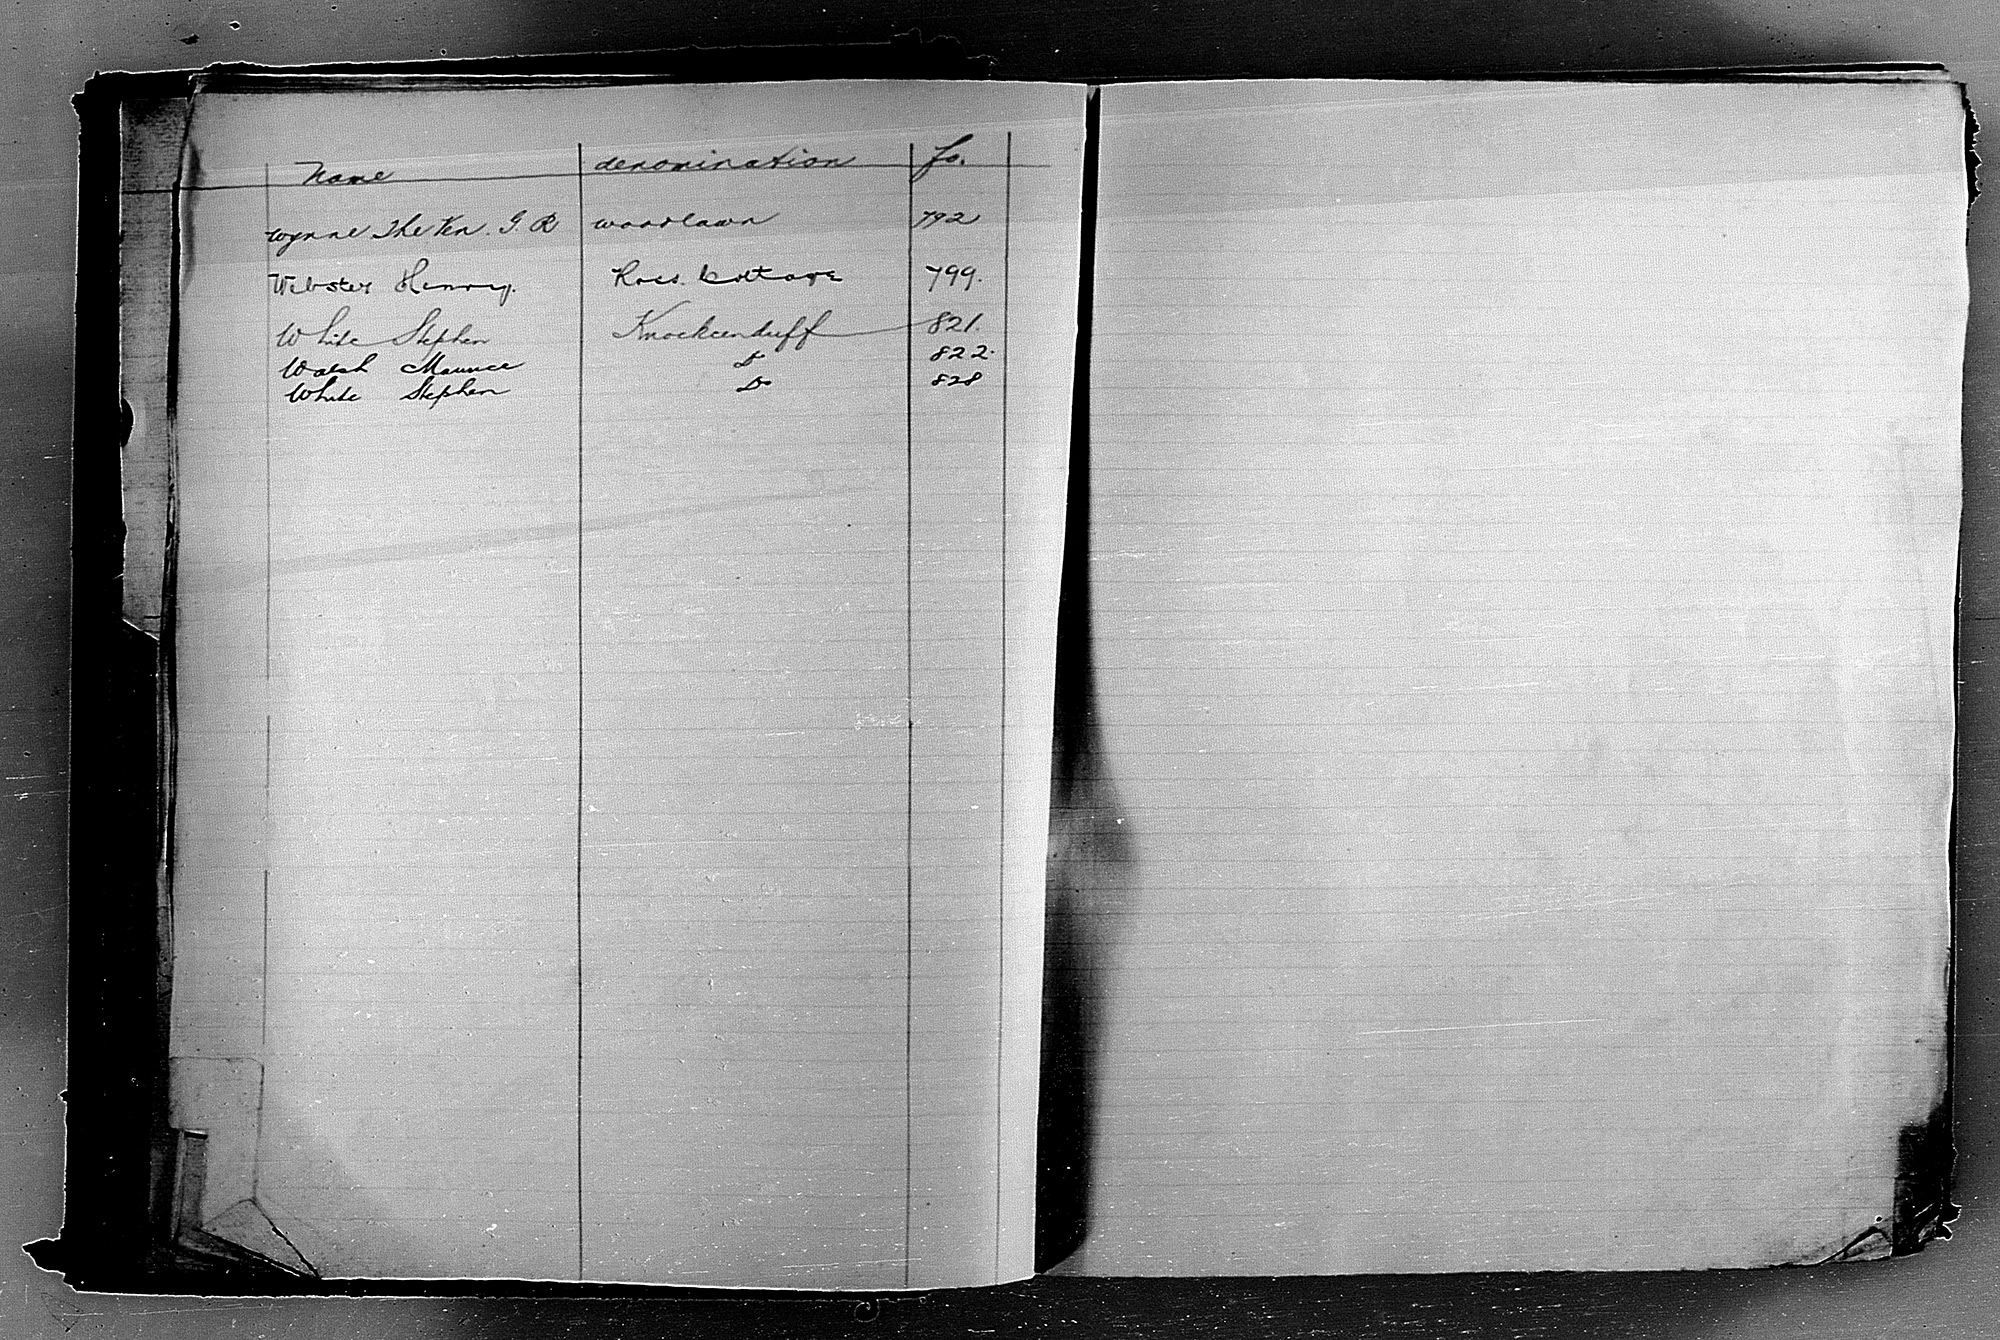 Name denomination fo.
Wynne The Ven. G. R woodlawn 792
Webster Henry. Ross. Cottage 799.
White Stephen Knockeenduff 821.
Walsh Maurice Do 822.
White Stephen Do 828